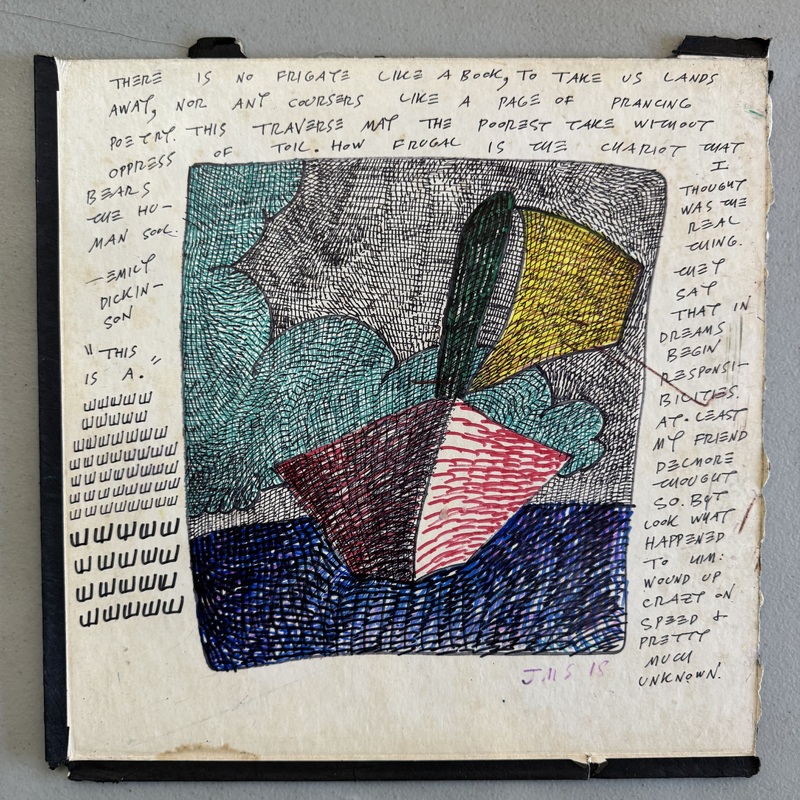 THERE IS NO FRIGATE LIKE A BOOK, TO TAKE US LANDS
AWAY, NOR ANY COURSERS LIKE A PAGE OF PRANCING
POETRY. THIS TRAVERSE MAY THE POOREST TAKE WITHOUT
OPPRESS OF TOIL. HOW FRUGAL IS THE CHARIOT THAT
BEARS
THE HU-
MAN SOUL.
—EMILY
DICKIN-
SON
"THIS
IS A."
I
THOUGHT
WAS THE
REAL
THING.
THEY
SAY
THAT IN
DREAMS
BEGIN
RESPONSI-
BILITIES.
AT LEAST
MY FRIEND
DELMORE
THOUGHT
SO. BUT
LOOK WHAT
HAPPENED
TO HIM:
WOUND UP
CRAZY ON
SPEED &
PRETTY
MUCH
UNKNOWN.
18